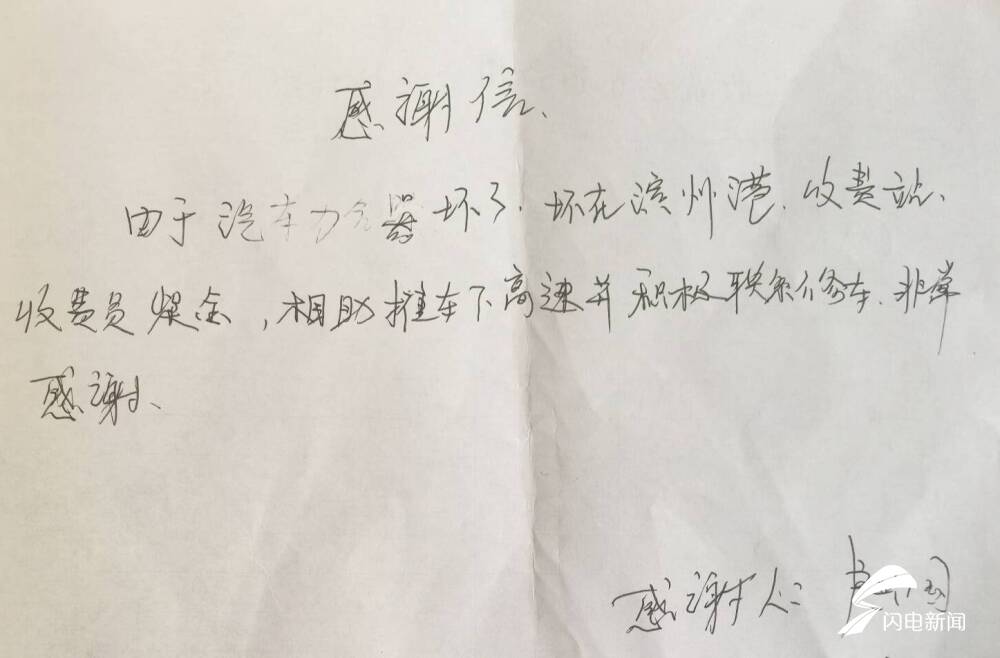 感谢信、
由于汽车力合器坏了. 坏在滨州港. 收费站、
收费员煤金,相助推车下高速并积极联系修车. 非常
感谢、
感谢人:
闪电新闻